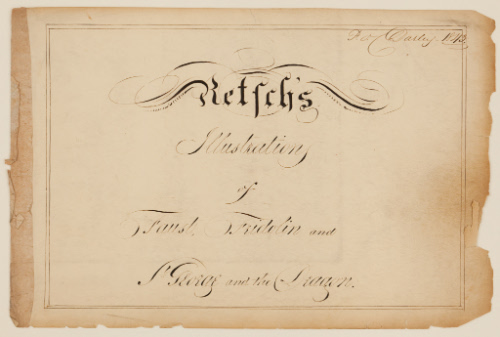 F.O.C. Darley. 1842
Retsch's
Illustrations
of
Faust, Fridolin and
St George and the Dragon.